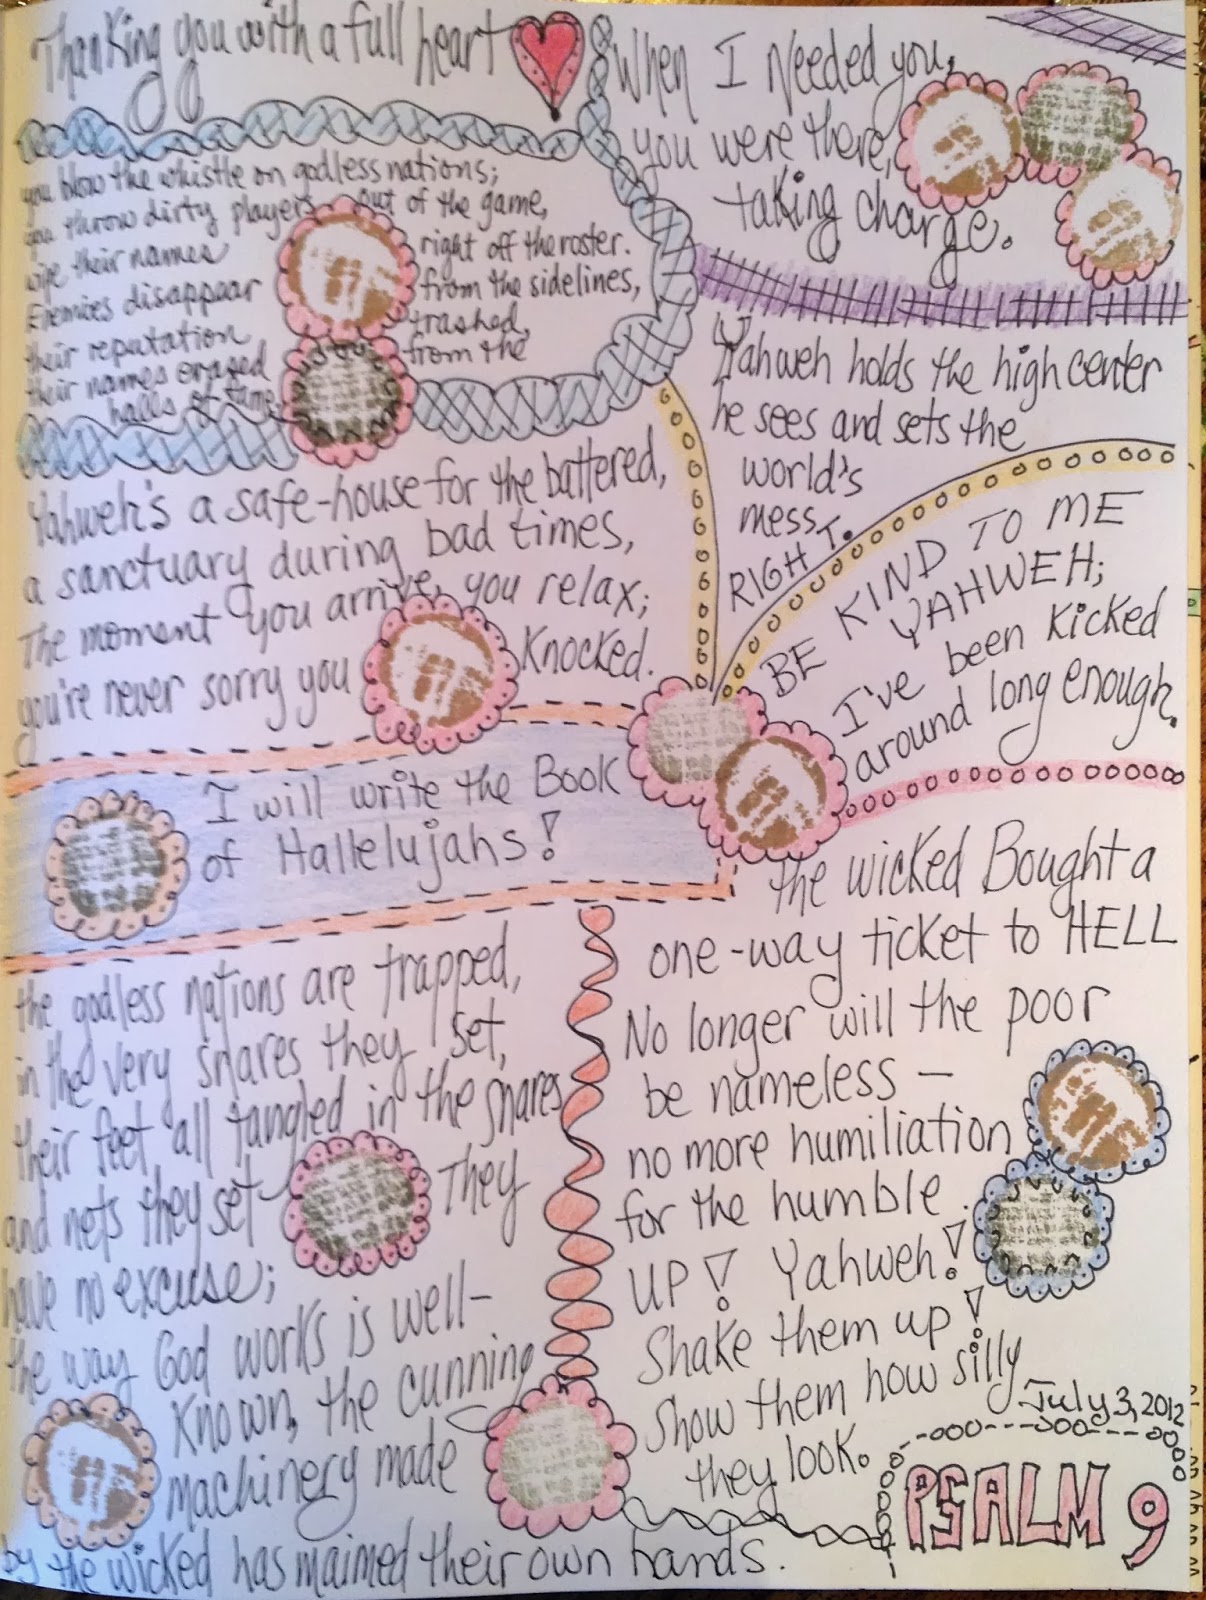 Thanking you with a full heart
When I Needed you,
you were there,
taking charge.
you blow the whistle on godless nations;
you throw dirty players out of the game,
wipe their names right off the roster.
Enemies disappear from the sidelines,
their reputation trashed,
their names erased from the
halls of fame
Yahweh holds the high center
he sees and sets the
world's
mess
RIGHT.
Yahweh's a safe-house for the battered,
a sanctuary during bad times,
The moment you arrive, you relax;
you're never sorry you Knocked.
BE KIND TO ME
YAHWEH;
I've been kicked
around long enough.
I will write the Book
of Hallelujahs!
the wicked Bought a
one-way ticket to HELL
No longer will the poor
be nameless —
no more humiliation
for the humble.
UP! Yahweh!
Shake them up!
Show them how silly
they look.
the godless nations are trapped,
in the very snares they set,
their feet all tangled in the snares
and nets they set They
have no excuse;
the way God works is well-
Known, the cunning
machinery made
by the wicked has maimed their own hands.
July 3, 2012
PSALM 9